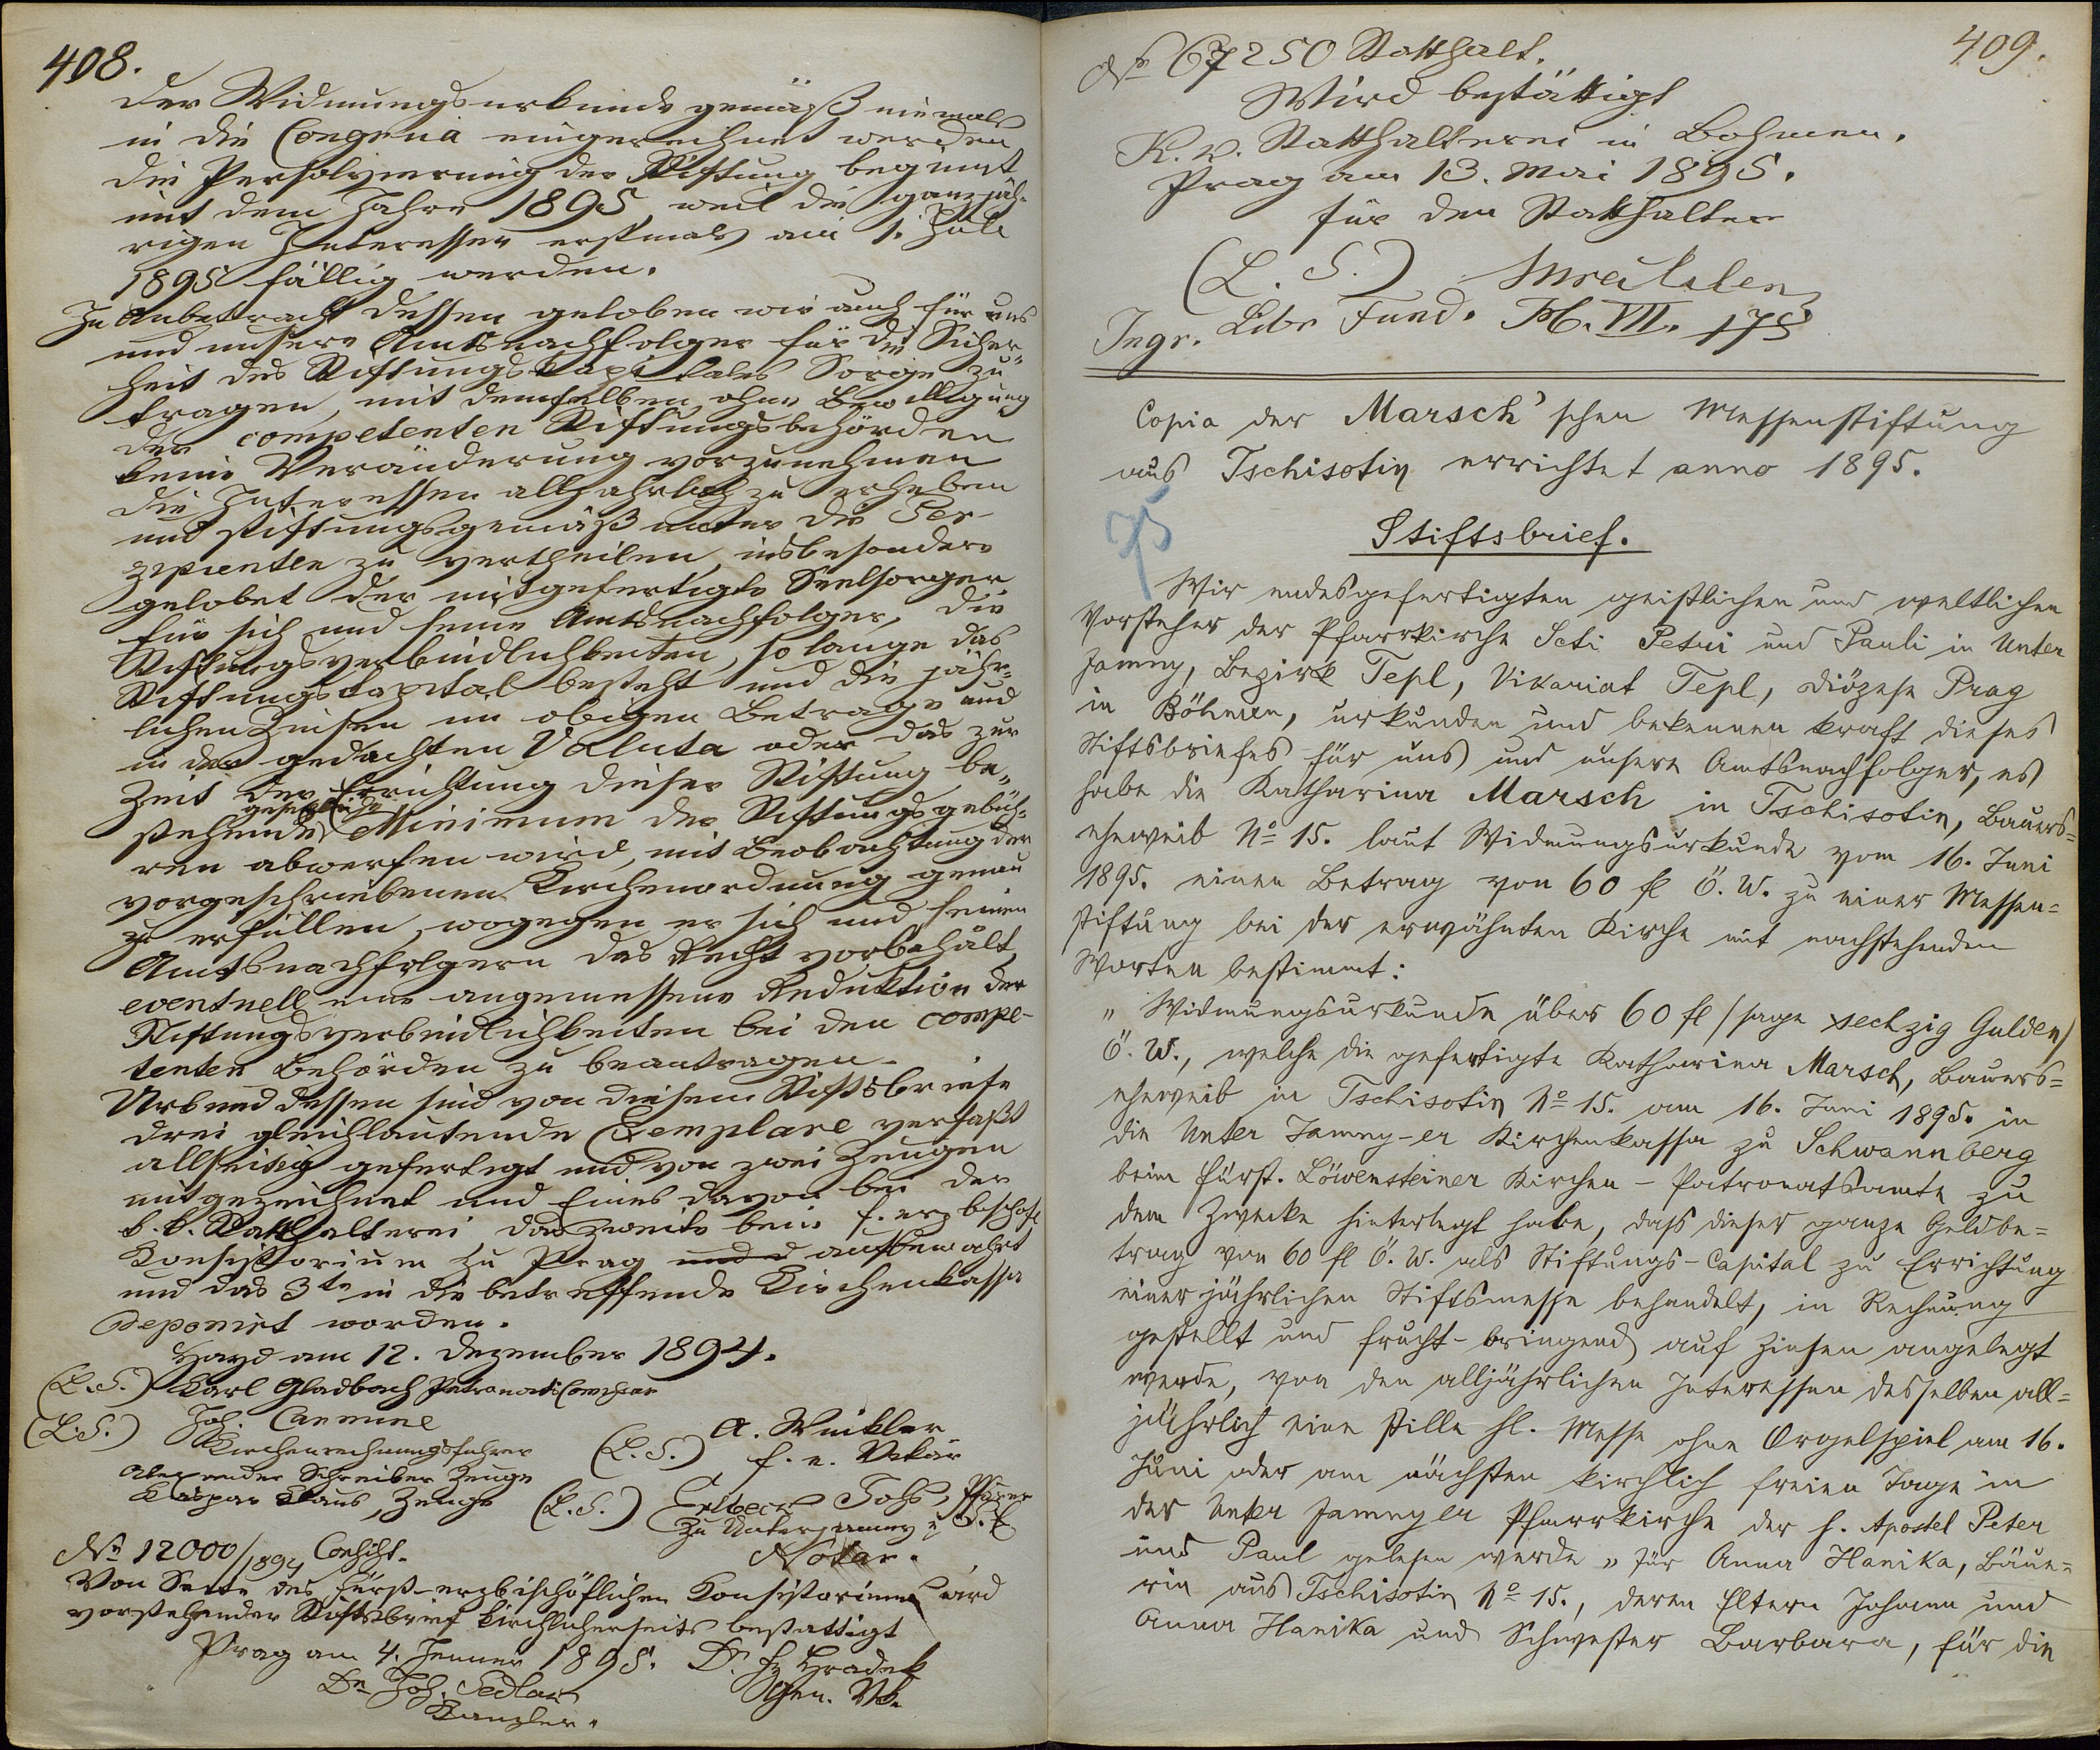 408.
der Widmungsurkunde gemäß niemals
in die Congrua eingerechnet werden
die Persolvierung der Stiftung beginnt
mit dem Jahre 1895, weil die ganzjäh-
rigen Interessen erstmals am 1. Juli
1895 fällig werden.
In Anbetracht dessen geloben wir auch für uns
und unsere Amtsnachfolger für die Sicher-
heit des Stiftungskapitales Sorge zu
tragen, mit demselben ohne Bewilligung
der competenten Stiftungsbehörden
keine Veränderung vorzunehmen
die Interessen alljahrlich zu erheben
und stiftungsgemäß unter die Per-
zipienten zu vertheilen, insbesondere
gelobet der mitgefertigte Seelsorger
für sich und seine Amtsnachfolger, die
Stiftungsverbindlichkeiten, so lange das
Stiftungskapital besteht und die jähr-
lichen Zinsen im obigen Betrage und
in der gedachten Valuta oder das zur
Zeit der Errichtung dieser Stiftung be-
stehende gesetzliche Minimum der Stiftungsgebüh-
ren abwerfen wird, mit Beobachtung der
vorgeschriebenen Kirchenordnung genau
zu erfüllen, wogegen er sich und seinen
Amtsnachfolgern das Recht vorbehält,
eventuell eine angemessene Reduktion der
Stiftungsverbindlichkeiten bei den compe-
tenten Behörden zu beantragen.
Urkund dessen sind von diesem Stiftsbriefe
drei gleichlautende Exemplare verfaßt
allseitig gefertigt und von zwei Zeugen
mitgezeichnet und Eines davon bei der
k. k. Statthalterei, das zweite beim f. erzbischöfl
Konsistorium zu Prag und aufbewahrt
und das 3te in die betreffende Kirchenkassa
deponirt worden.
Hayd am 12. Dezember 1894.
(L.S.) Karl Gladbach Patronats
(L.S.) Joh.
Kirchenrechnungsführer
(L.S.) A. Winkler
f. e. Vikär
Alexander Schreiber Zeuge
Kaspar Klaus, Zeuge
(L.S.) Erlbeck Joh, Pfarrer
zu Unterjamny
Notar.
No 12000/1894 Consist.
Von Seite des fürst-erzbischöflichen Konsistoriums wird
vorstehender Stiftsbrief kirchlicherseits bestattigt
Prag am 4. Jenner 1895. Dr. Hradek
Gen. Vk.
Dr. Joh. Sedlak
Kanzler.
409.
No 67250 Statthalt.
Wird bestättigt
K. k. Statthalterei in Bohmen.
Prag am 13. Mai 1895.
für den Statthalter
(L. S.)
Ingr. Libr Fund. Pt. VII. 175
Copia der Marsch'schen Messenstiftung
aus Tschisotin errichtet anno 1895.
95
Stiftsbrief.
Wir endesgefertigten geistlichen und weltlichen
Vorsteher der Pfarrkirche Scti Petri und Pauli in Unter
Jamny, Bezirk Tepl, Vikariat Tepl, Diözese Prag
in Böhmen, urkunden und bekennen kraft dieses
Stiftsbriefes für uns und unsere Amtsnachfolger, es
habe die Katharina Marsch in Tschisotin, Bauers=
eheweib No 15. laut Widmungsurkunde vom 16. Juni
1895. einen Betrag von 60 fl Ö. W. zu einer Messen=
stiftung bei der erwähnten Kirche mit nachstehenden
Worten bestimmt:
„ Widmungsurkunde über 60 fl /sage sechzig Gulden/
Ö. W., welche die gefertigte Katharina Marsch, Bauers=
eheweib in Tschisotin No 15. am 16. Juni 1895. in
die Unter Jamny-er Kirchenkassa zu Schwannberg
beim fürst. Löwensteiner Kirchen - Patronatsamte zu
dem Zwecke hinterlegt habe, dass dieser ganze Geldbe=
trag von 60 fl Ö. W. als Stiftungs-Capital zu Errichtung
einer jährlichen Stiftsmesse behandelt, in Rechnung
gestellt und frucht-bringend auf Zinsen angelegt
werde, von den alljährlichen Interessen desselben all=
jährlich eine stille hl. Messe ohne Orgelspiel am 16.
Juni oder am nächsten kirchlich freien Tage in
der Unter Jamnyer Pfarrkirche der h. Apostel Peter
und Paul gelesen werde „ für Anna Hanika, Bäue=
rin aus Tschisotin No 15., deren Eltern Johann und
Anna Hanika und Schwester Barbara, für die